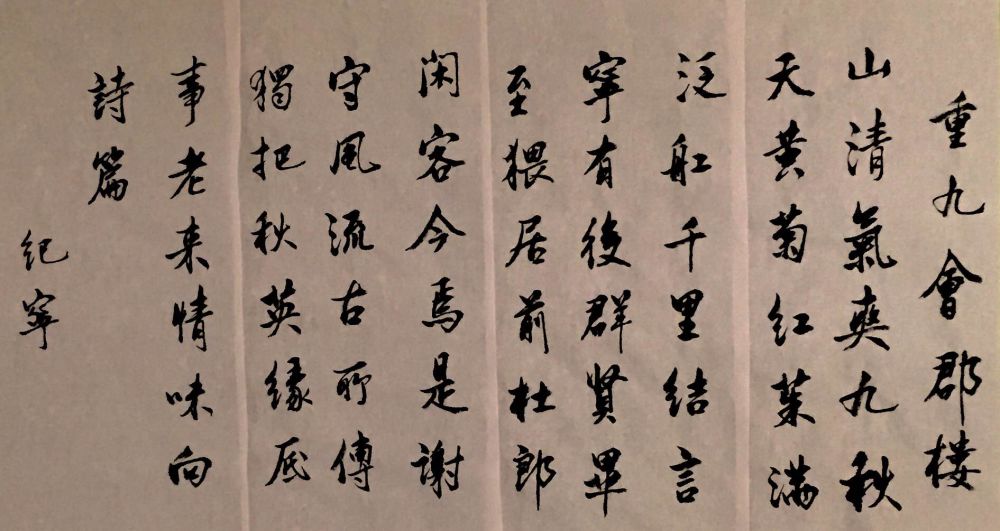 重九會郡樓
山清氣爽九秋
天黄菊紅茱滿
泛舡千里結言
寧有後群賢畢
至猥居前杜郎
閑客今焉是謝
守風流古所傳
獨把秋英緣底
事老来情味向
詩篇
紀寧